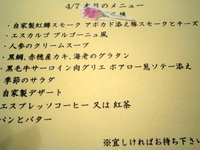 4/7 本日のメニュー
・自家製紅鱒スモーク アボカド添え豚スモークとチーズ
・エスカルゴ ブルゴーニュ風
・人参のクリームスープ
・黒鯛、赤琥カキ、海老のグラタン
・黒毛牛サーロイン肉グリエ ボアロー葱ソテー添え
季節のサラダ
自家製デザート
エスプレッソコーヒー 又は 紅茶
パンとバター
※宜しければお持ち下さい